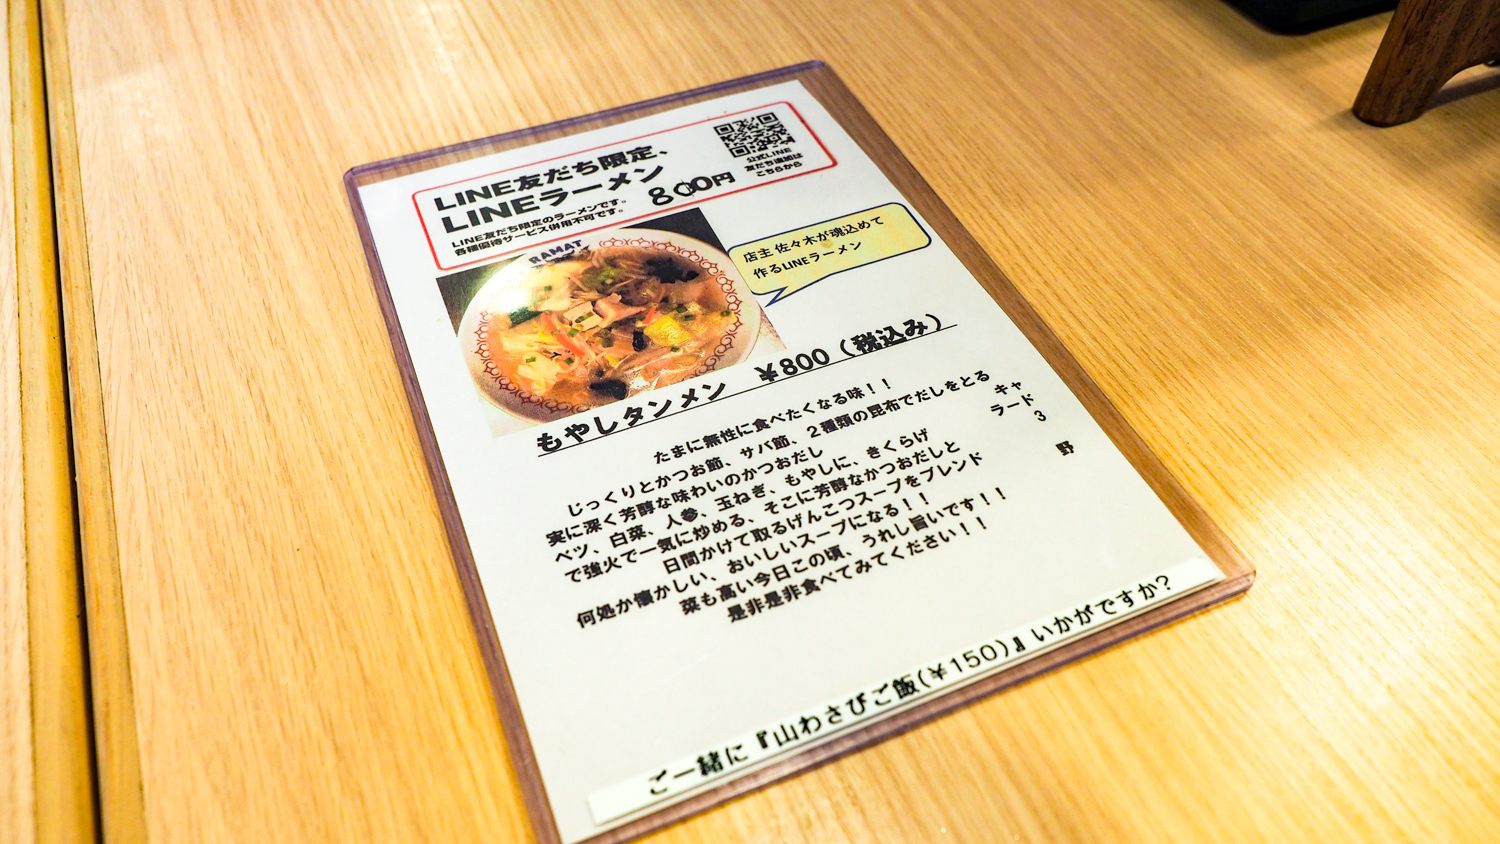 LINE友だち限定、
LINEラーメン 800円
LINE友だち限定のラーメンです。
各種優待サービス併用不可です。
公式LINE
友だち追加は
こちらから
店主 佐々木が魂込めて
作るLINEラーメン
RAMAT
もやしタンメン ￥800（税込み）
たまに無性に食べたくなる味！！
じっくりとかつお節、サバ節、２種類の昆布でだしをとる
実に深く芳醇な味わいのかつおだし キャ
ベツ、白菜、人参、玉ねぎ、もやしに、きくらげ ラード
で強火で一気に炒める、そこに芳醇なかつおだしと 3
日間かけて取るげんこつスープをブレンド
何処か懐かしい、おいしいスープになる！！ 野
菜も高い今日この頃、うれし旨いです！！
是非是非食べてみてください！！
ご一緒に『山わさびご飯(￥150)』いかがですか？